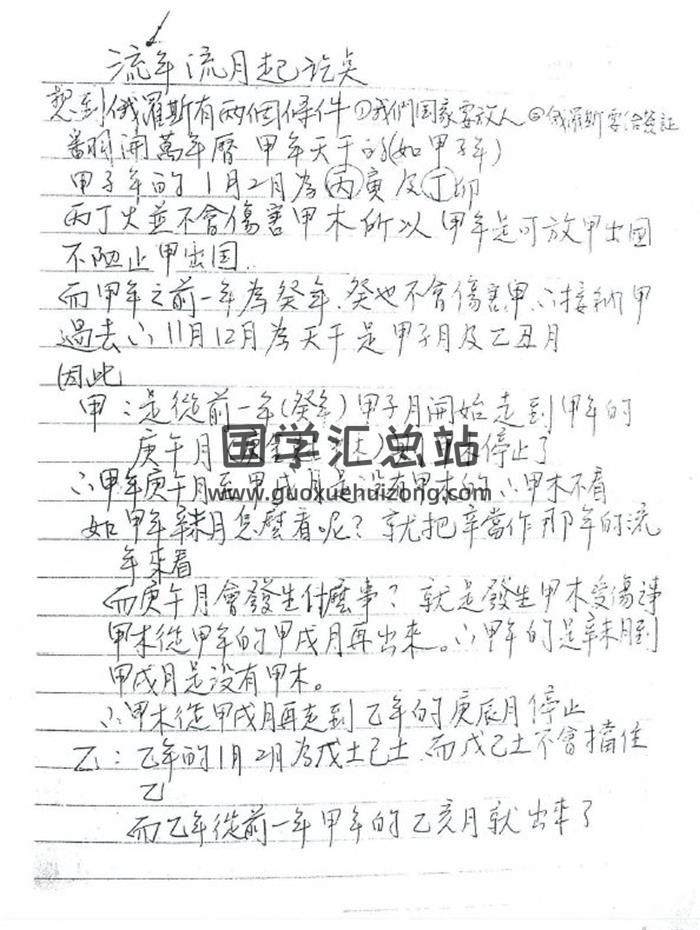 流年流月起讫点
想到俄羅斯有兩個條件①我們国家要放人②俄羅斯要给簽証
翻開萬年曆 甲年天干的(如甲子年)
甲子年的1月2月為丙寅及丁卯
丙丁火並不會傷害甲木所以 甲年是可放甲出国
不阻止甲出国.
而甲年之前一年為癸年.癸也不會傷害甲∴接納甲
過去∴11月12月為天干是甲子月及乙丑月
因此
甲：是從前一年(癸年)甲子月開始走到甲年的
庚午月 停止了
国学汇总站
∴甲年庚午月至甲戌月是没有甲木的∴甲木不看
www.guoxuehuizong.com
如甲年辛未月怎麼看呢？就把辛當作那年的流
年來看
而庚午月會發生什麼事？就是發生甲木受傷
甲木從甲年的甲戌月再出來。∴甲年的是辛未月到
甲戌月是没有甲木。
∴甲木從甲戌月再走到乙年的庚辰月停止
乙：乙年的1月2月為戊土己土 而戊己土不會擋住
乙
而乙年從前一年甲年的乙亥月就出來了